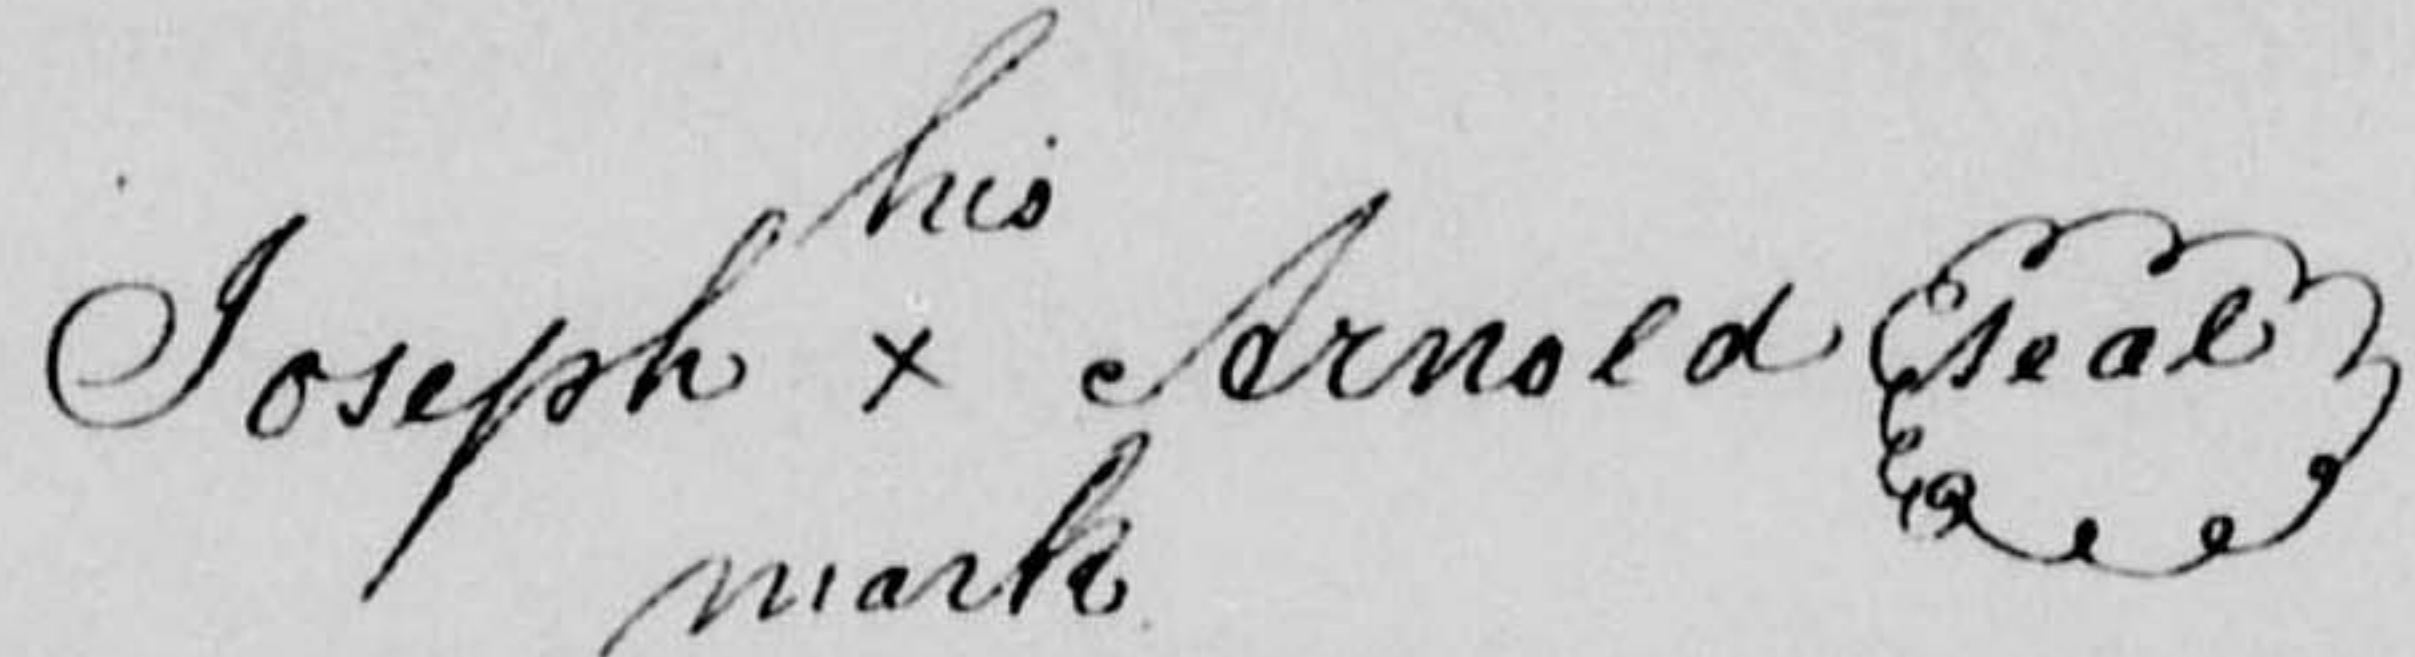 his
Joseph x Arnold seal
mark